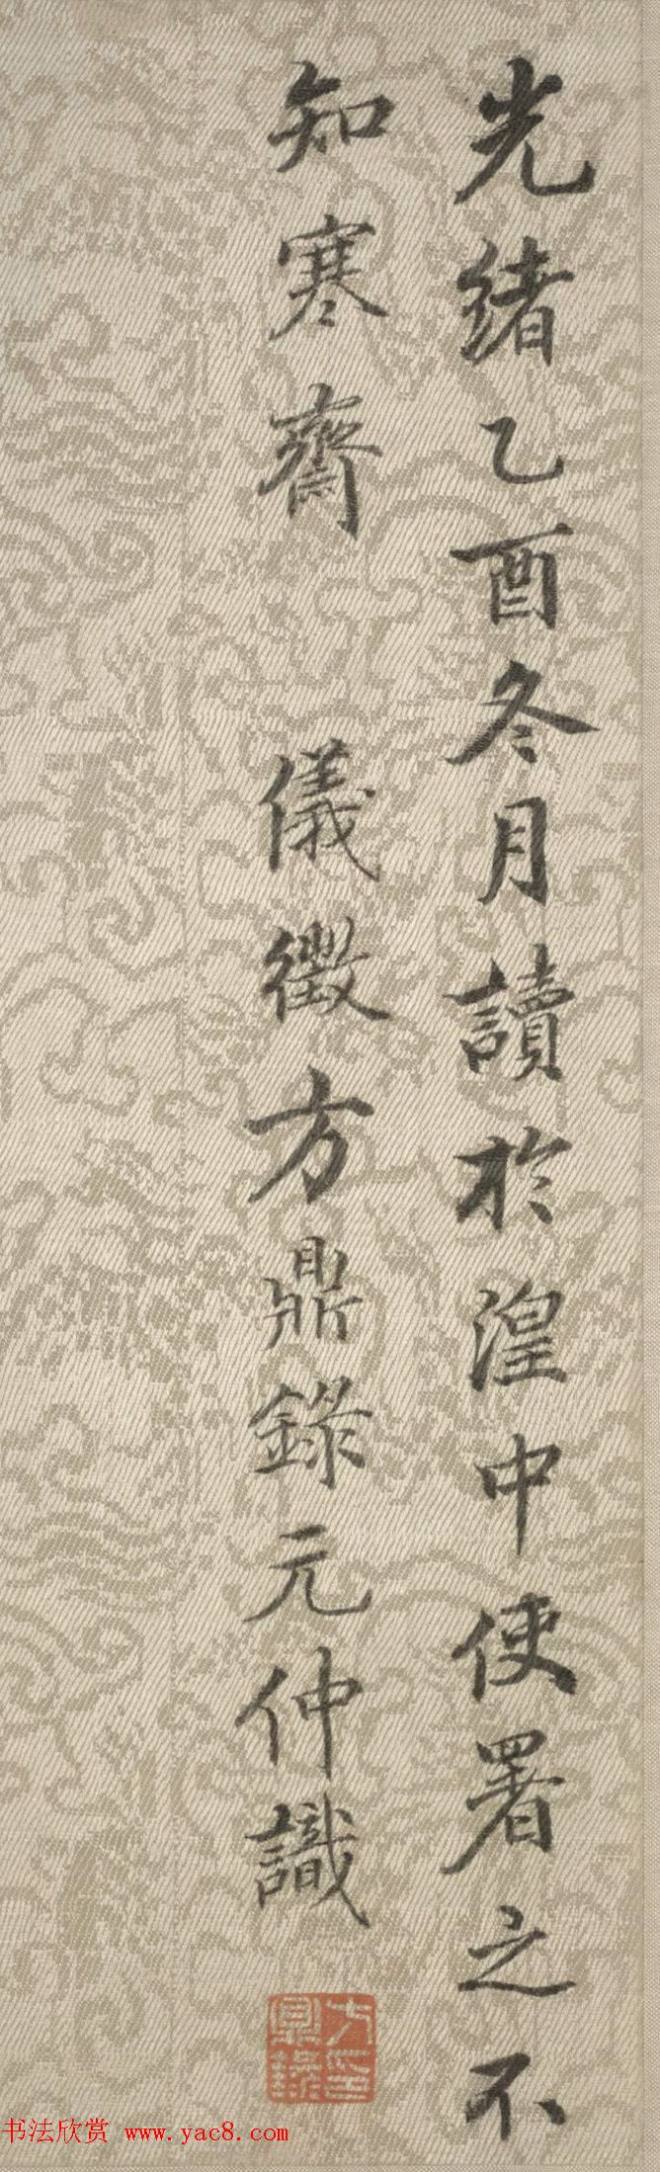 光緒乙酉冬月讀於湟中使署之不
知寒齋　儀徵方鼎錄元仲識
方鼎錄印
书法欣赏 www.yac8.com